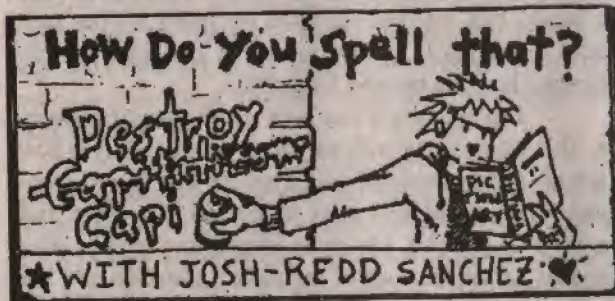 How Do You Spell that?
Destroy
Capi
ARY
★WITH JOSH-REDD SANCHEZ♥